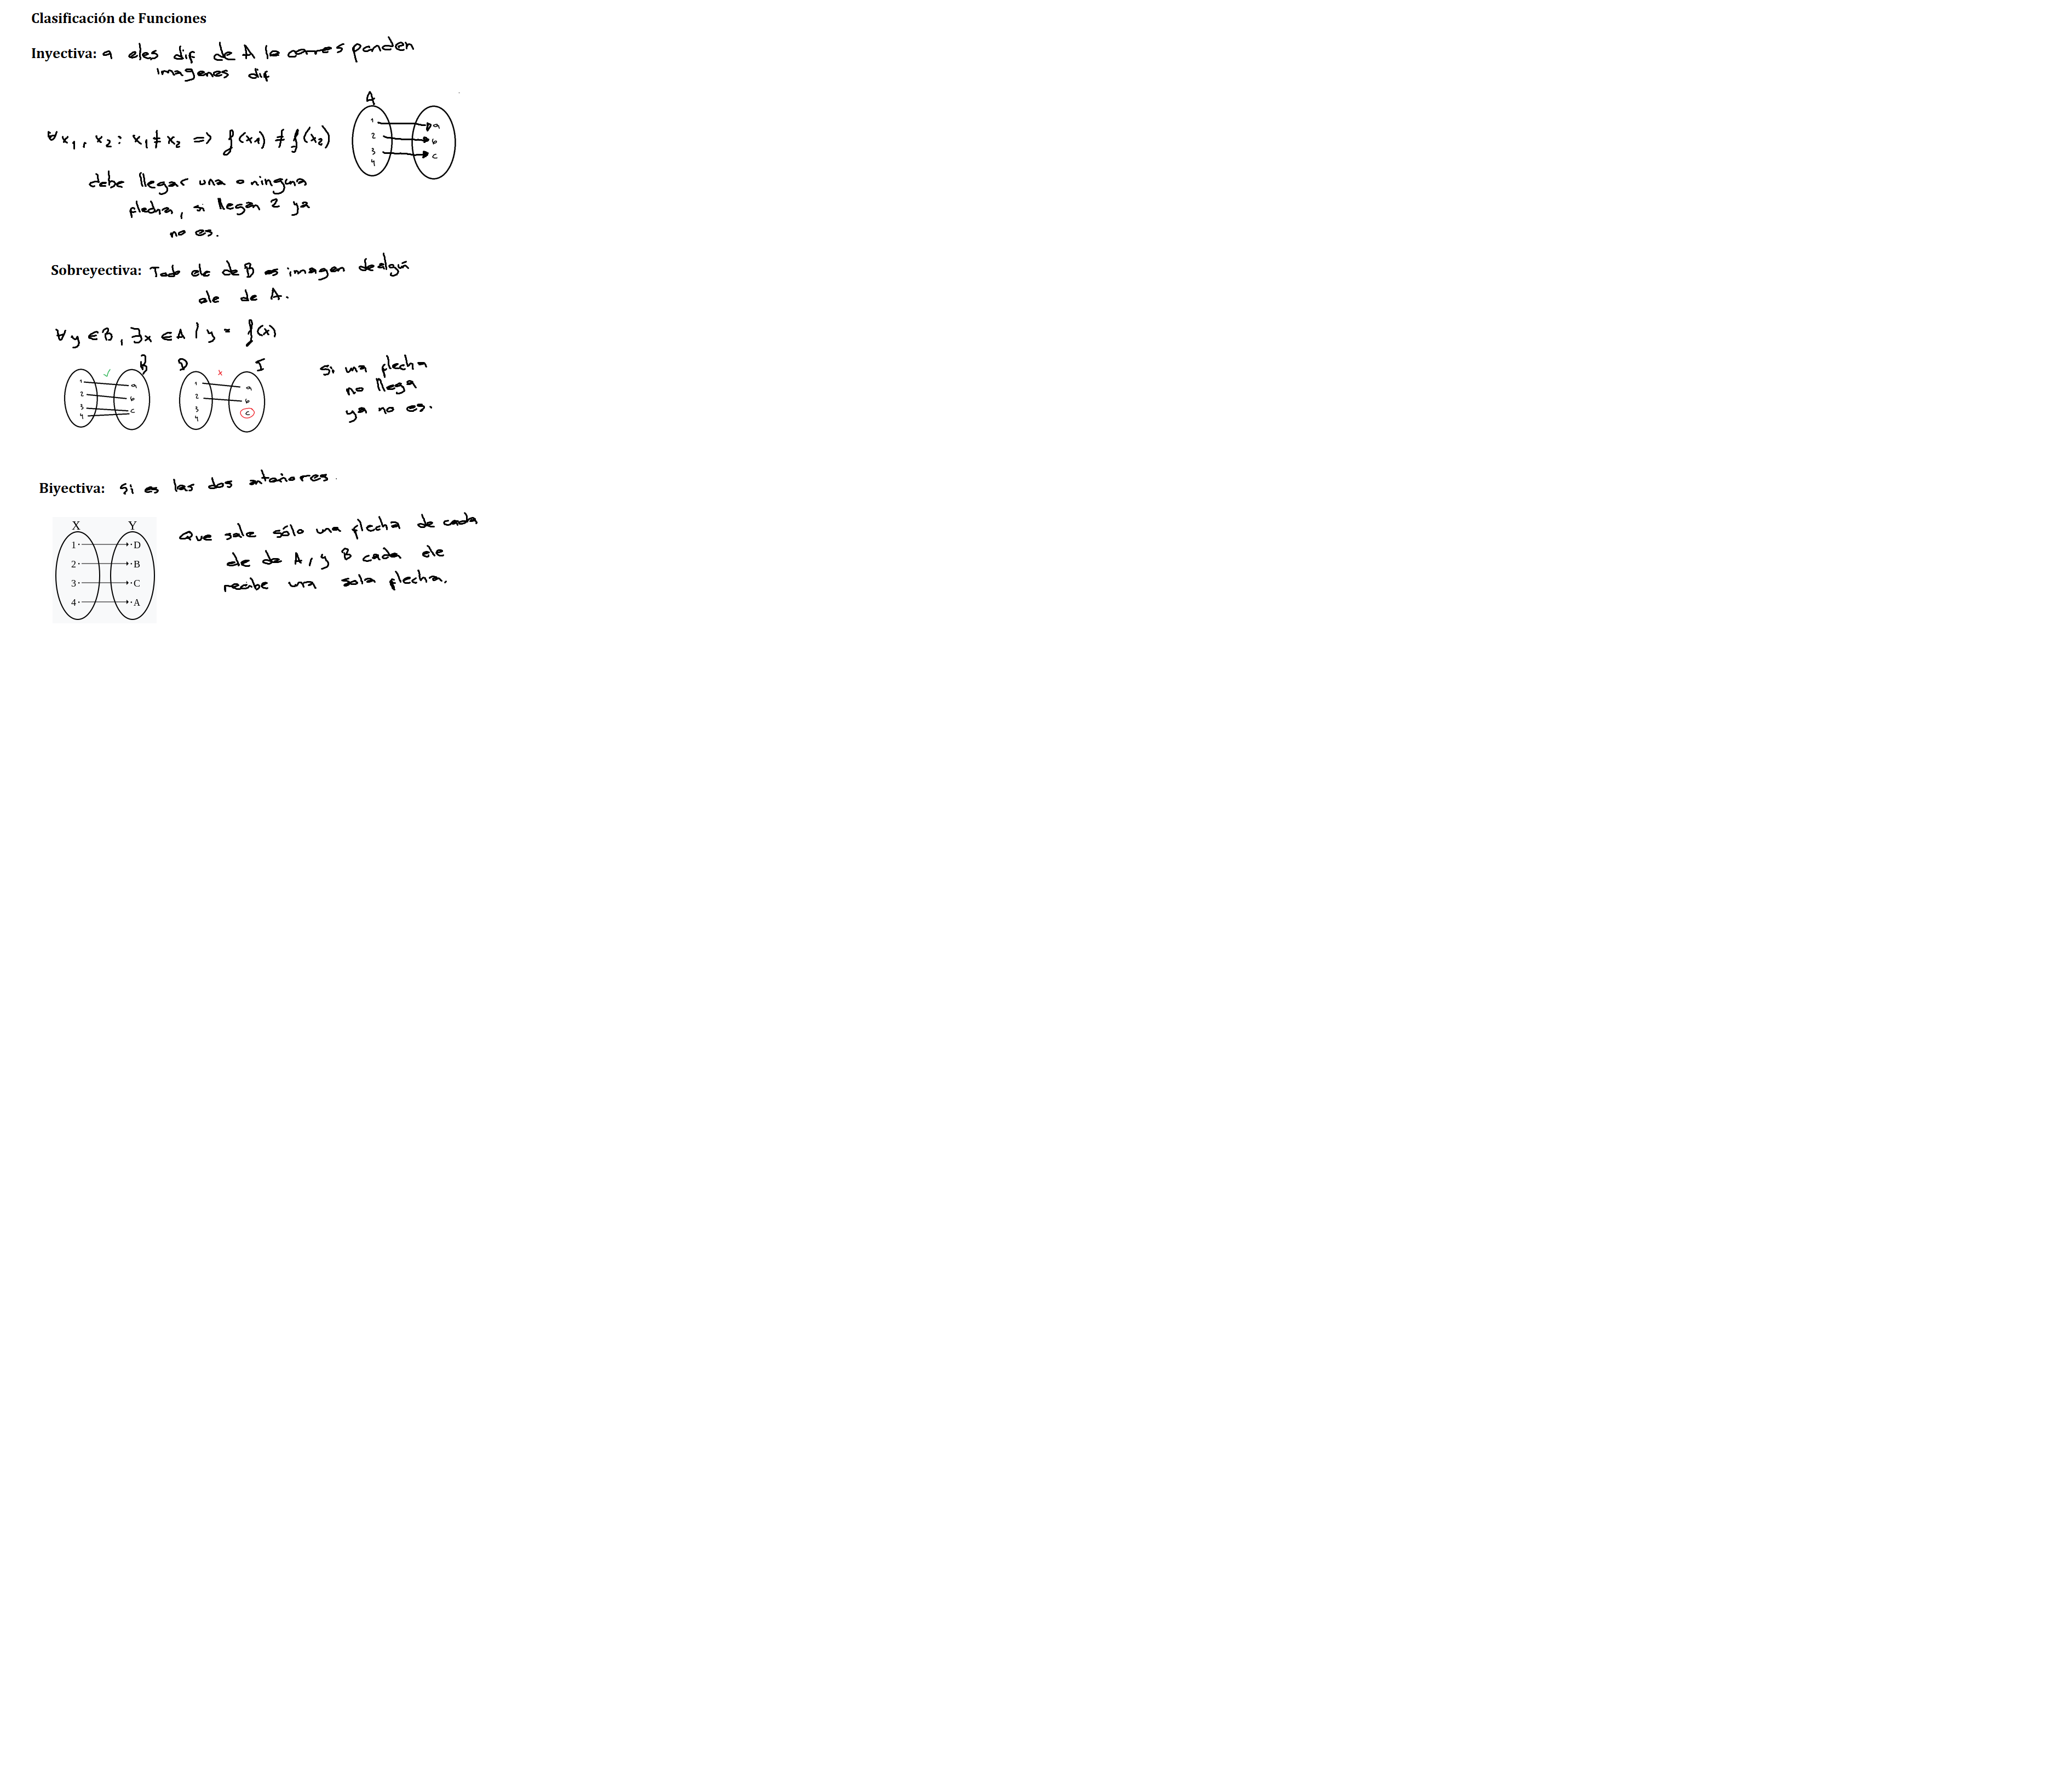 Clasificación de Funciones
Inyectiva: a eles dif de A le corresponden
imagenes dif
A
∀ x₁, x₂ : x₁ ≠ x₂ => f(x₁) ≠ f(x₂)
1 a
2 b
3 c
4
debe llegar una o ninguna
flecha, si llegan 2 ya
no es.
Sobreyectiva: Todo ele de B es imagen de algún
ele de A.
∀ y ∈ B, ∃x ∈ A / y = f(x)
B D I
✓ x
1 a 1 a
2 b 2 b
3 c 3 c
4 4
Si una flecha
no llega
ya no es.
Biyectiva: Si es las dos anteriores.
X Y
1 D
2 B
3 C
4 A
Que sale sólo una flecha de cada
ele de A, y B cada ele
recibe una sola flecha.